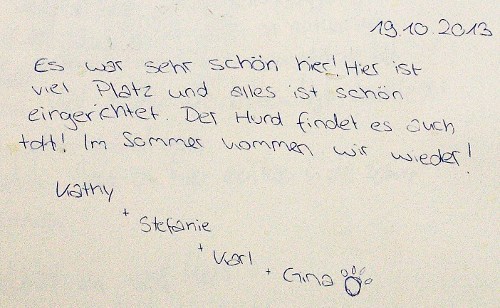 19.10.2013
Es war sehr schön hier! Hier ist
viel Platz und alles ist schön
eingerichtet. Der Hund findet es auch
toll! Im Sommer kommen wir wieder!
Kathy
+ Stefanie
+ Karl
+ Gina